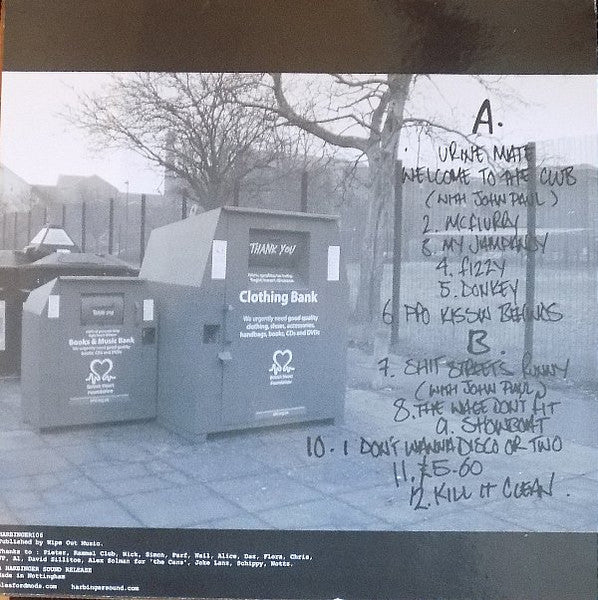 A.
URINE MATE
WELCOME TO THE CLUB
(WITH JOHN PAUL)
2. McFLURRY
3. MY JAMPANDY
4. FIZZY
5. DONKEY
6 PPO KISSIN BEHINDS
B.
7. SHIT STREETS RUNNY
(WITH JOHN PAUL)
8. THE WAGE DON'T FIT
9. SHOWBOAT
10. I DON'T WANNA DISCO OR TWO
11. £5.60
12. KILL IT CLEAN.
THANK YOU
Clothing Bank
We urgently need good quality
clothing, shoes, accessories,
handbags, books, CDs and DVDs
British Heart
Foundation
Thank you
Books & Music Bank
We urgently need good quality
books, CDs and DVDs
British Heart
Foundation
HARBINGER106
Published by Wipe Out Music.
Thanks to : Pieter, Rammel Club, Nick, Simon, Parf, Neil, Alice, Daz, Flora, Chris,
Al, David Sillitoe, Alex Solman for 'the Cans', Joke Lanz, Schippy, Notts.
A HARBINGER SOUND RELEASE
Made in Nottingham
sleafordmods.com harbingersound.com